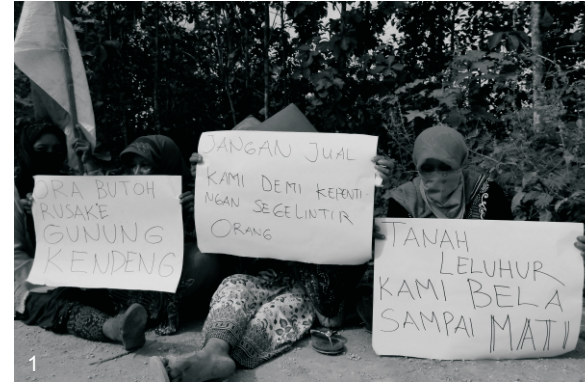 ORA BUTOH
RUSAKE
GUNUNG
KENDENG
JANGAN JUAL
KAMI DEMI KEPENTI-
NGAN SEGELINTIR
ORANG
TANAH
LELUHUR
KAMI BELA
SAMPAI MATI
1